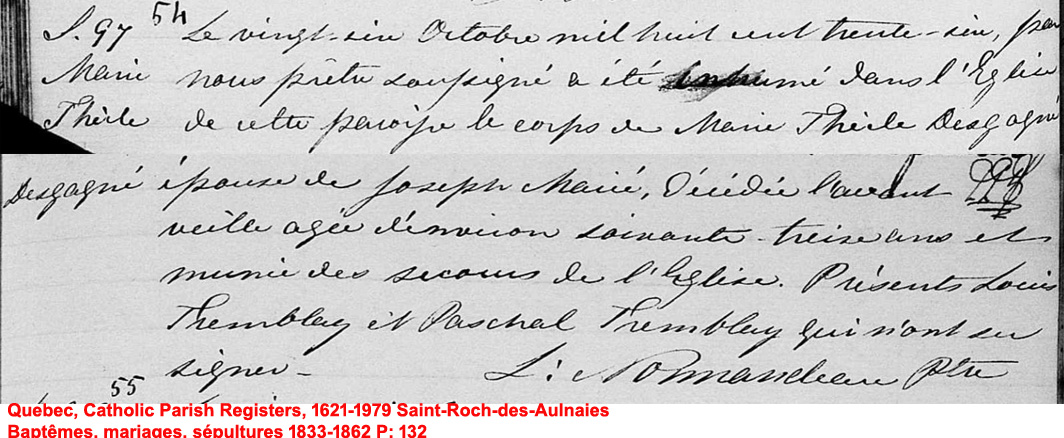 54
S. 97 Le vingt-six Octobre mil huit cent trente-six, par
Marie nous prêtre soussigné a été inhumé dans l'Eglise
Thècle de cette paroisse le corps de Marie Thècle Desgagné
Desgagné épouse de Joseph Marié, décédée l'avant
veille agée d'environ soixante-treize ans et
munie des secours de l'Eglise. Présents Louis
Themblay et Paschal Tremblay qui n'ont su
signer - L: Normandeau Ptre
55
Quebec, Catholic Parish Registers, 1621-1979 Saint-Roch-des-Aulnaies
Baptêmes, mariages, sépultures 1833-1862 P: 132